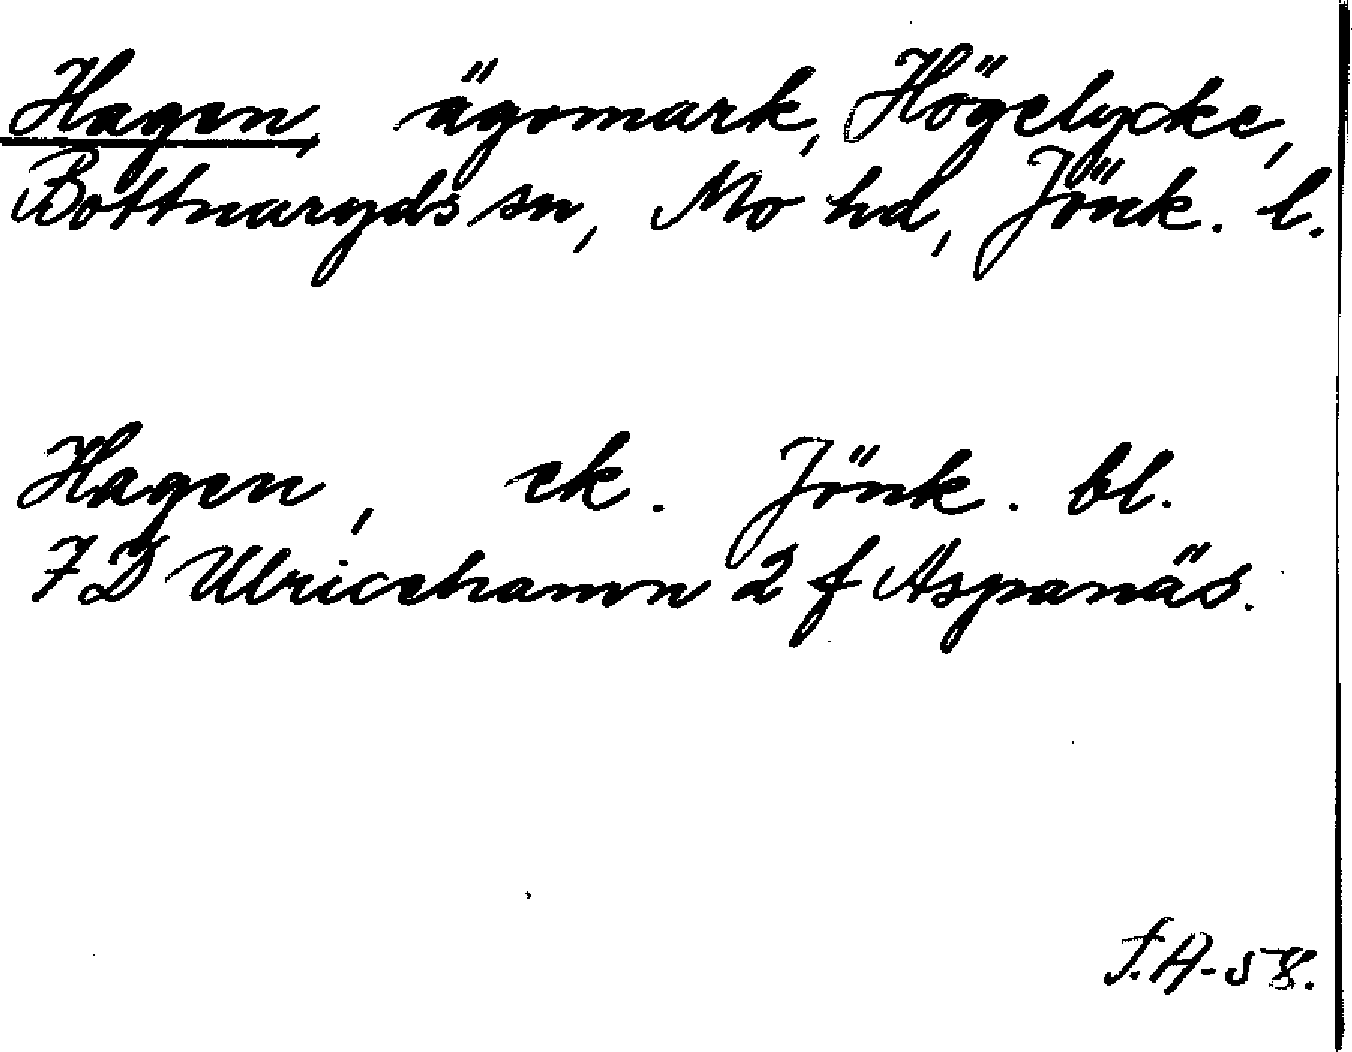 Hagen, ägomark, Högelycke,
Bottnaryds sn, Mo hd, Jönk. l.
Hagen, ek. Jönk. bl.
7D Ulricehamn 2 f Aspanäs.
F.A-58.